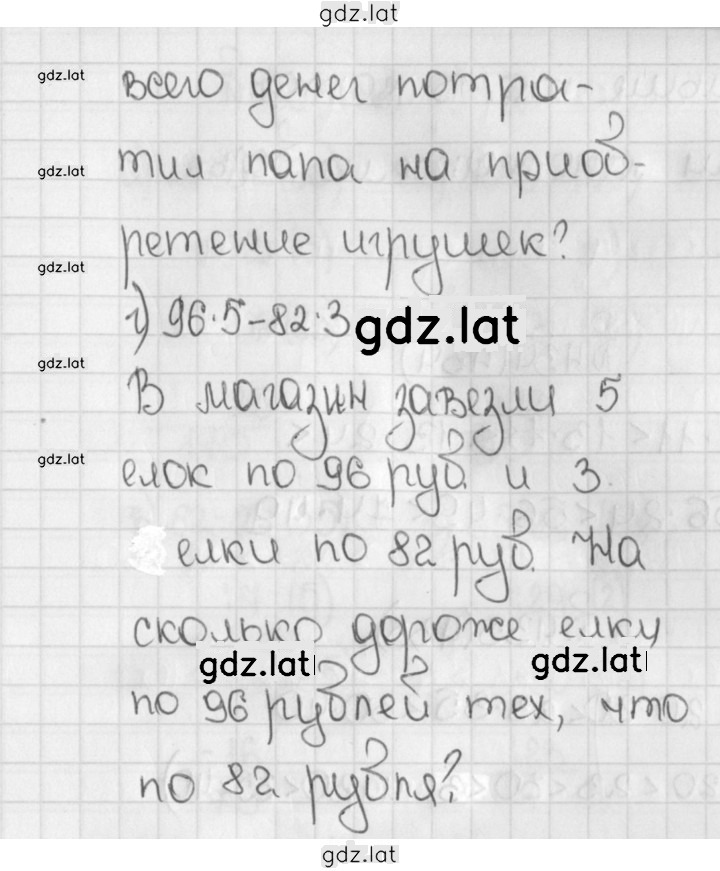 gdz.lat
gdz.lat всего денег потра-
gdz.lat тил папа на приоб-
gdz.lat ретение игрушек?
г) 96·5-82·3 gdz.lat
gdz.lat В магазин завезли 5
gdz.lat елок по 96 руб и 3
елки по 82 руб. На
сколько дороже елки
gdz.lat gdz.lat
по 96 рублей тех, что
по 82 рубля?
gdz.lat